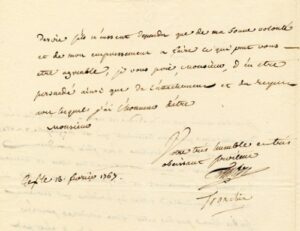 devoir s'ils n'eussent dependu que de ma bonne volonté
et de mon empressement a faire ce qui peut vous
etre agreable, je vous prie, Monsieur, d'en etre
persuadé ainsi que de l'attachement et du respect
avec lequels j'ai l'honneur d'être
Monsieur
Votre tres humble et tres
obeissant serviteur
13. fevrier 1767.
Tronchin